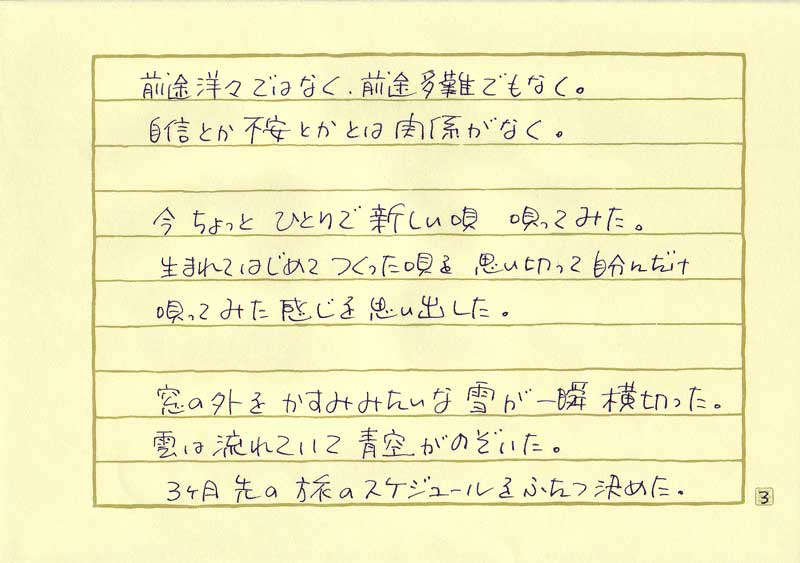 前途洋々ではなく、前途多難でもなく。
自信とか不安とかとは関係がなく。
今ちょっと ひとりで 新しい唄 唄ってみた。
生まれてはじめて つくった唄を 思い切って自分にだけ
唄ってみた感じを思い出した。
窓の外を かすみみたいな 雪が一瞬 横切った。
雲は流れていて 青空がのぞいた。
3ヶ月先の 旅のスケジュールをふたつ決めた。
3